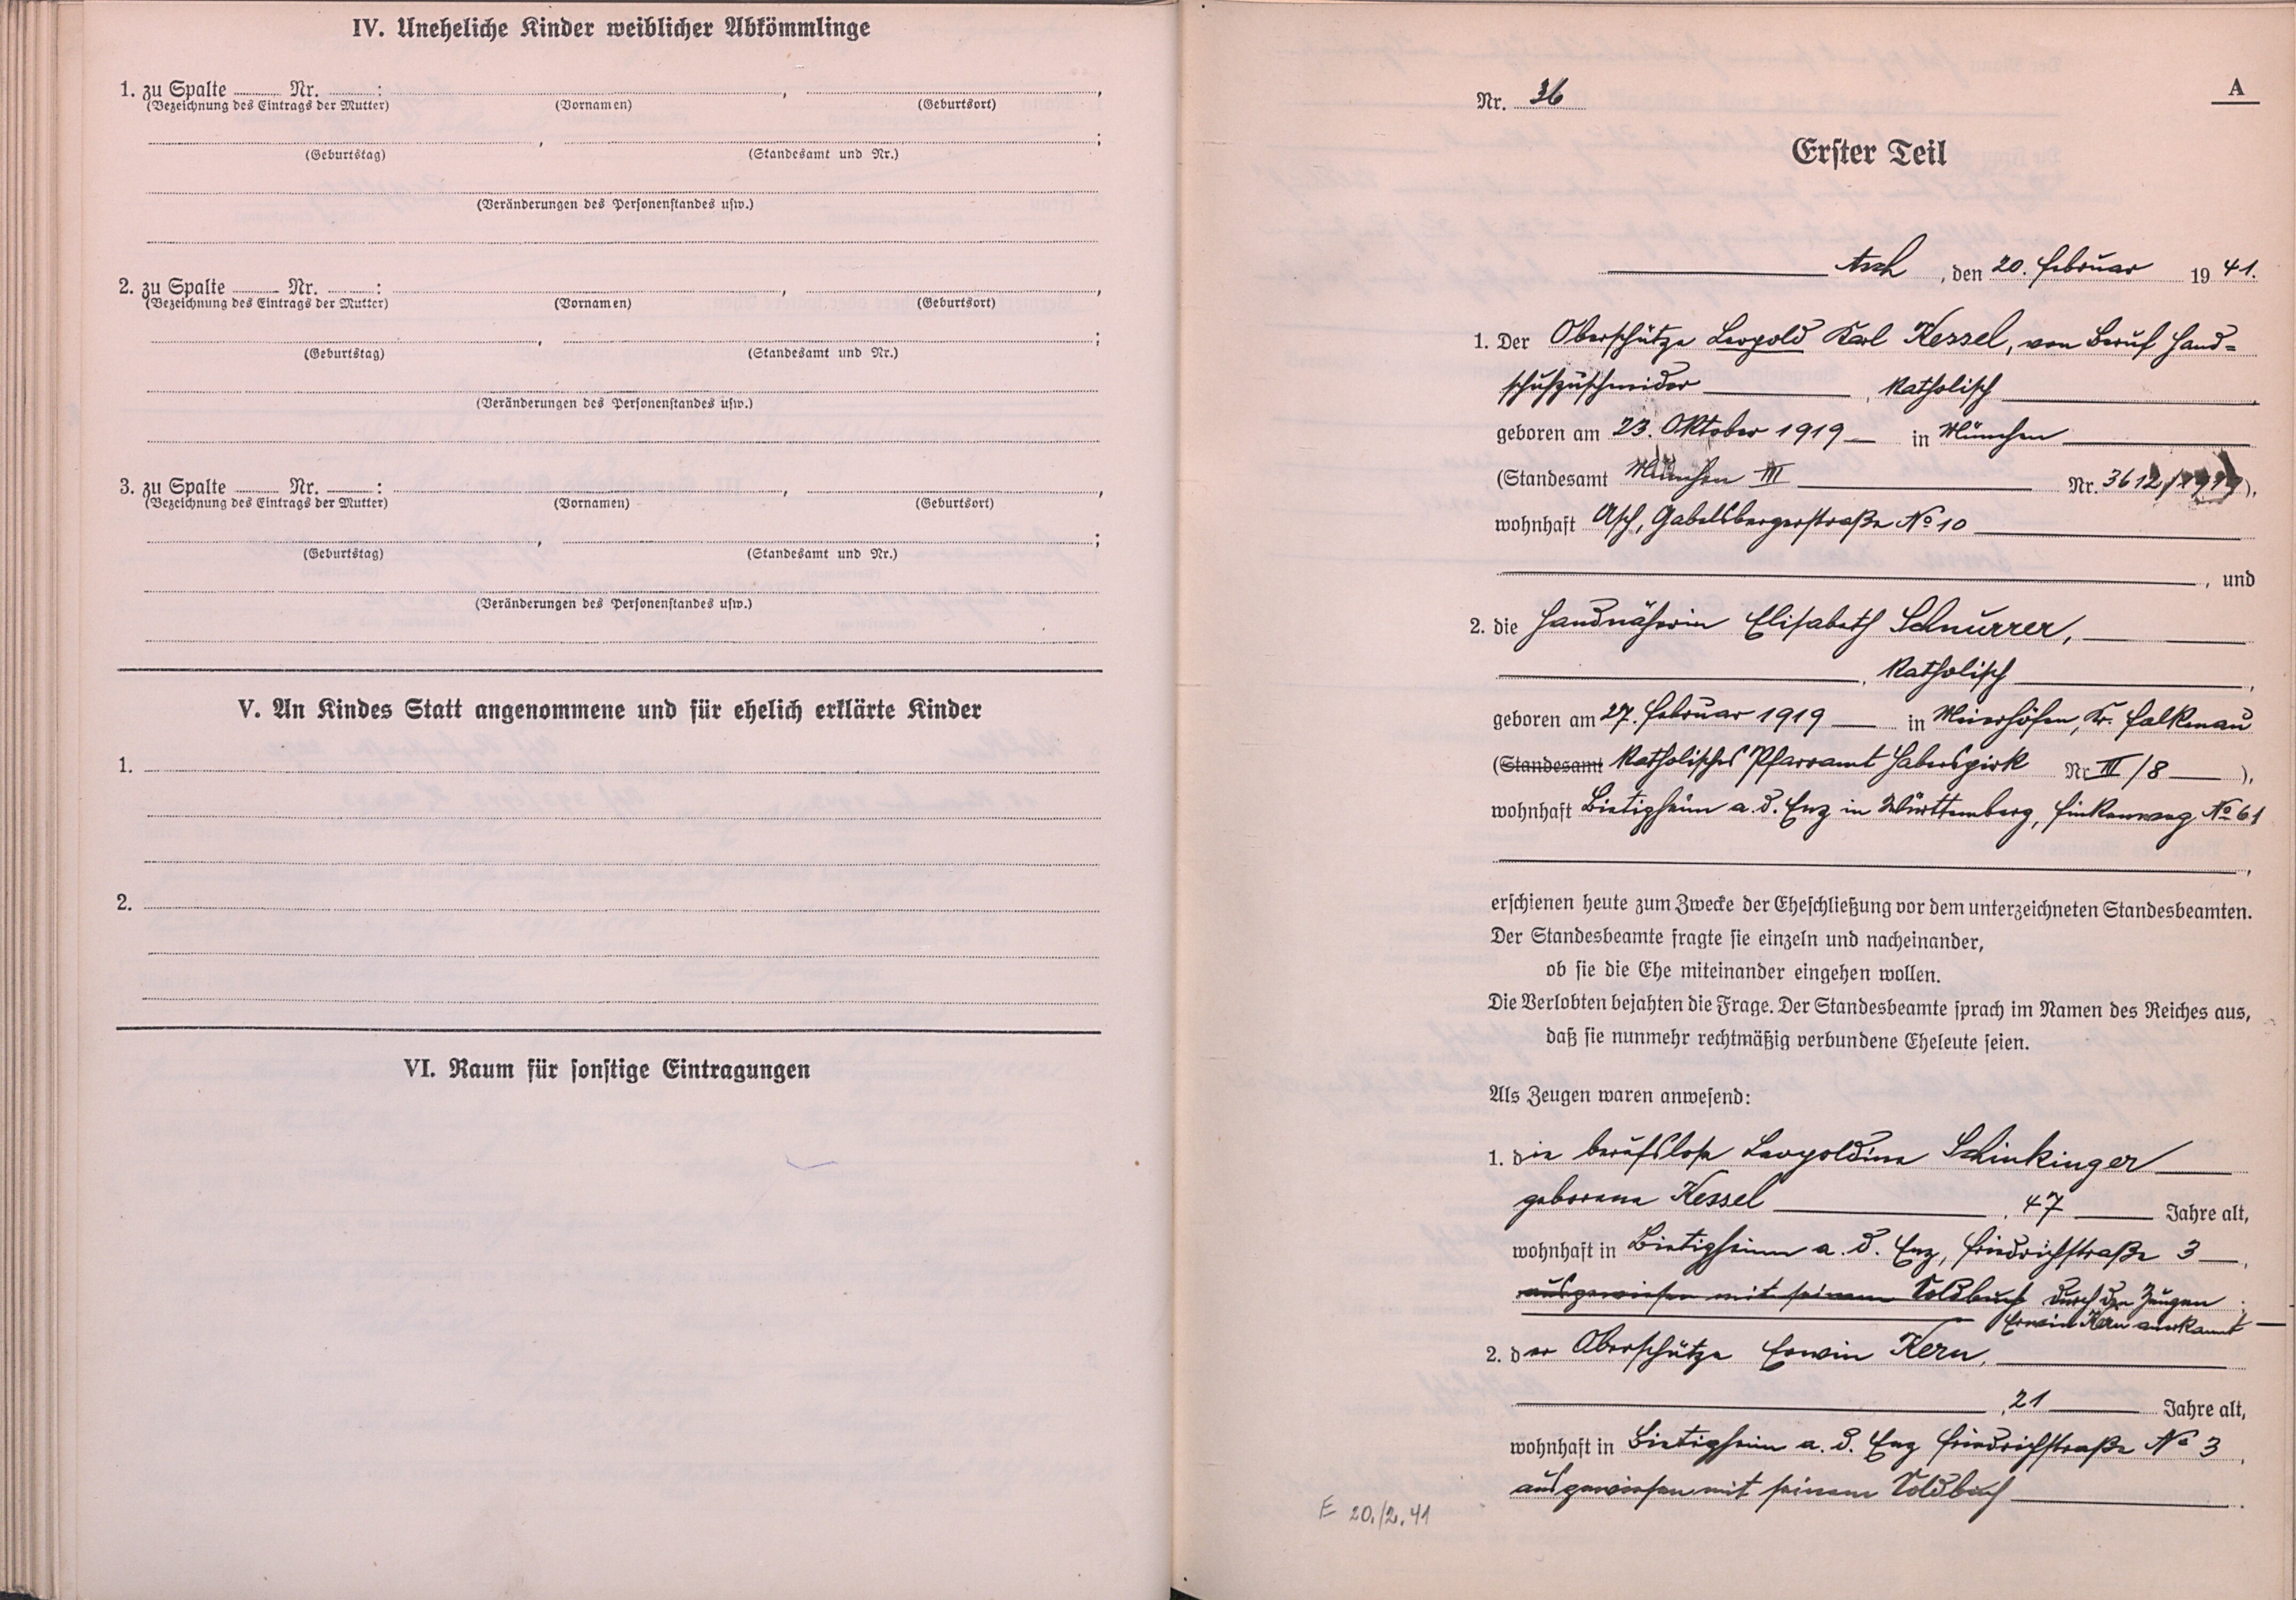 IV. Uneheliche Kinder weiblicher Abkömmlinge
1. zu Spalte ........ Nr. ........ : ........, ........,
(Bezeichnung des Eintrags der Mutter) (Vornamen) (Geburtsort)
........, ........;
(Geburtstag) (Standesamt und Nr.)
(Veränderungen des Personenstandes usw.)
2. zu Spalte ........ Nr. ........ : ........, ........,
(Bezeichnung des Eintrags der Mutter) (Vornamen) (Geburtsort)
........, ........;
(Geburtstag) (Standesamt und Nr.)
(Veränderungen des Personenstandes usw.)
3. zu Spalte ........ Nr. ........ : ........, ........,
(Bezeichnung des Eintrags der Mutter) (Vornamen) (Geburtsort)
........, ........;
(Geburtstag) (Standesamt und Nr.)
(Veränderungen des Personenstandes usw.)
V. An Kindes Statt angenommene und für ehelich erklärte Kinder
1.
2.
VI. Raum für sonstige Eintragungen
A
Nr. 36
Erster Teil
Asch, den 20. Februar 1941.
1. Der Oberschütze Leopold Karl Kessel, von Beruf Hand=
schuhzuschneider, katholisch,
geboren am 23. Oktober 1919 in München
(Standesamt München III Nr. 3612/1919),
wohnhaft Asch, Gabelsbergerstraße No 10
, und
2. die Handnäherin Elisabeth Schnurrer,
, katholisch,
geboren am 27. Februar 1919 in Meierhöfen, Kr. Falkenau
(Standesamt Katholisches Pfarramt Haberspirk Nr. III/8),
wohnhaft Bietigheim a. d. Enz in Württemberg, Finkenweg No 61
,
erschienen heute zum Zwecke der Eheschließung vor dem unterzeichneten Standesbeamten.
Der Standesbeamte fragte sie einzeln und nacheinander,
ob sie die Ehe miteinander eingehen wollen.
Die Verlobten bejahten die Frage. Der Standesbeamte sprach im Namen des Reiches aus,
daß sie nunmehr rechtmäßig verbundene Eheleute seien.
Als Zeugen waren anwesend:
1. die berufslose Leopoldine Schinkinger
geborene Kessel, 47 Jahre alt,
wohnhaft in Bietigheim a. d. Enz, Friedrichstraße 3,
ausgewiesen mit seinem Soldbuch durch den Zeugen
Erwin Kern anerkannt;
2. der Oberschütze Erwin Kern,
, 21 Jahre alt,
wohnhaft in Bietigheim a. d. Enz Friedrichstraße No 3,
ausgewiesen mit seinem Soldbuch.
E 20./2.41